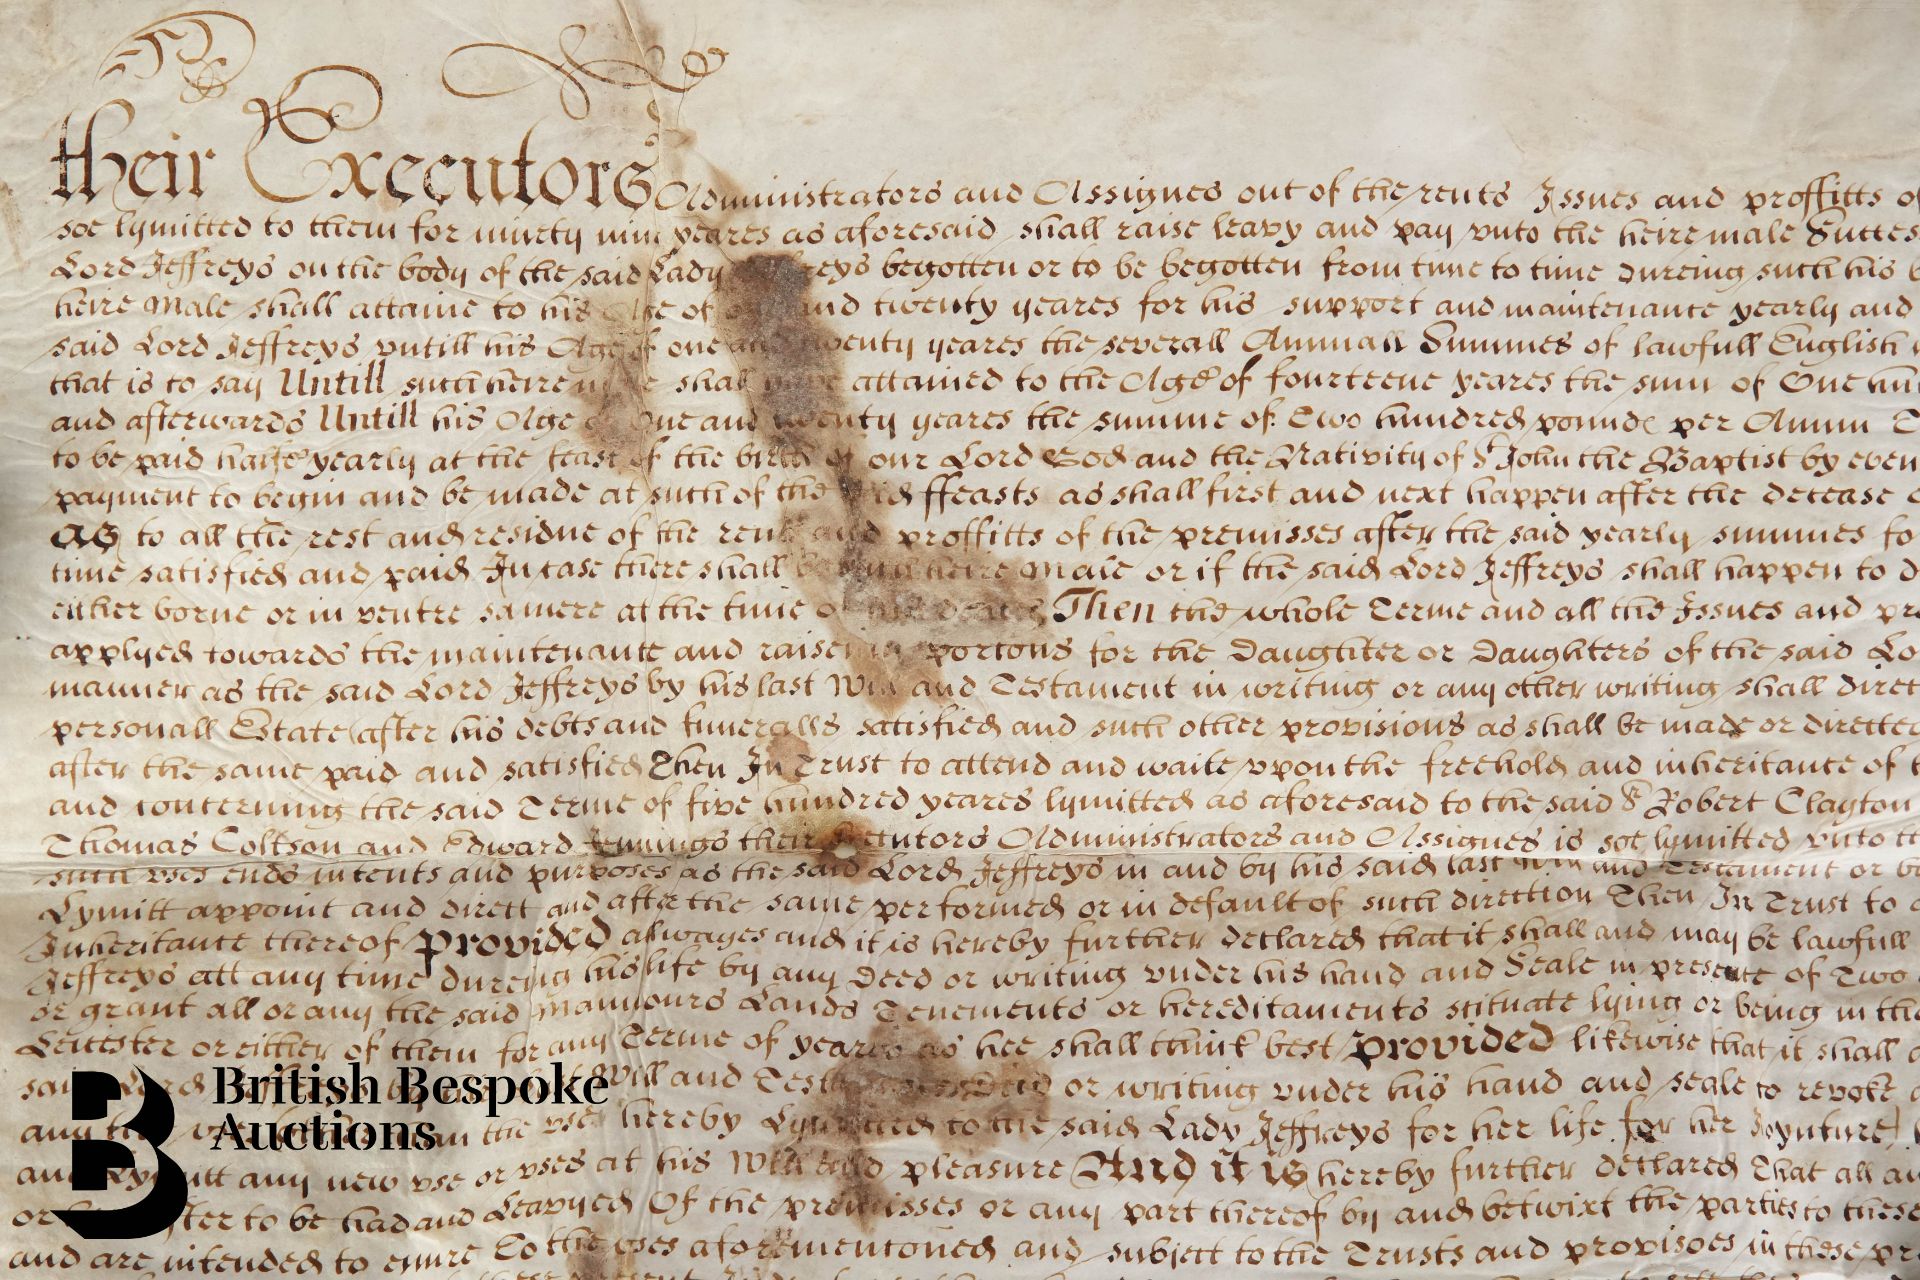 their Executors Administrators and Assignes out of the rents Issues and proffitts
soe lymitted to them for ninety nine yeares as aforesaid shall raise leavy and pay vnto the heire male
Lord Jeffreys on the body of the said Lady begotten or to be begotten from time to time dureing such his
heire Male shall attaine to his Age of and twenty yeares for his support and maintenance yearly and
said Lord Jeffreys vntill his Age of one and twenty yeares the severall Annuall Summes of lawfull English
that is to say Untill such heire shall have attained to the Age of fourteene yeares the sum of One
and afterwards Untill his Age One and twenty yeares the summe of Two hundred pounds per Annum
to be paid halfe yearly at the feast of the birth of our Lord God and the Nativity of St John the Baptist by even
payment to begin and be made at such of the said ffeasts as shall first and next happen after the decease
As to all the rest and residue of the rents and proffitts of the premisses after the said yearly summes
time satisfied and paid In case there shall heire Male or if the said Lord Jeffreys shall happen to
either borne or in ventre sa mere at the time Then the whole Terme and all the Issues and
applyed towards the maintenance and portons for the Daughter or Daughters of the said
manner as the said Lord Jeffreys by his last Will and Testament in writing or any other writing shall
personall Estate (after his debts and funeralls satisfied and such other provisions as shall be made or directed
after the same paid and satisfied Then In Trust to attend and waite vpon the freehold and inheritance of
and concerning the said Terme of five hundred yeares lymitted as aforesaid to the said Sr Robert Clayton
Thomas Coltson and Edward Jennings their Executors Administrators and Assignes is soe lymitted vnto
such vses ends intents and purposes as the said Lord Jeffreys in and by his said last Will and Testament or
Lymitt appoint and direct and after the same performed or in default of such direction Then In Trust to
Inheritance thereof Provided alwayes and it is hereby further declared that it shall and may be lawfull
Jeffreys att any time dureing his life by any Deed or writing vnder his hand and Seale in presence of Two
or grant all or any the said Mannours Lands Tenements or hereditaments scituate lying or being in the
Leicester or either of them for any Terme of yeares as hee shall think best Provided likewise that it shall
said Lord Will and or writing vnder his hand and seale to revoke
any than the vse hereby to the said Lady Jeffreys for her life for her Joynture)
and Lymitt any new vse or vses at his Will and pleasure And it is hereby further declared That all
to be had and Leavyed Of the premisses or any part thereof by and betwixt the parties to these
and are intended to enure To the vses aforementoned and subject to the Trusts and provisoes in these
British Bespoke
Auctions